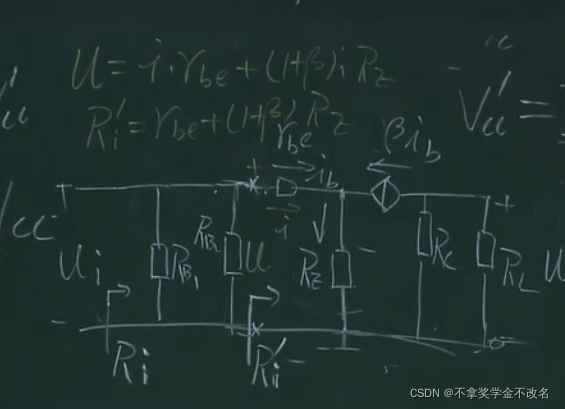 U = i·r_be + (1+β)i R_Z
R_i' = r_be + (1+β) R_Z
V_u' =
r_be
βi_b
+
i_b
+
i
U_i
R_B1
R_B2
U
R_Z
R_C
R_L
U
-
R_i
R_i'
-
CSDN @不拿奖学金不改名